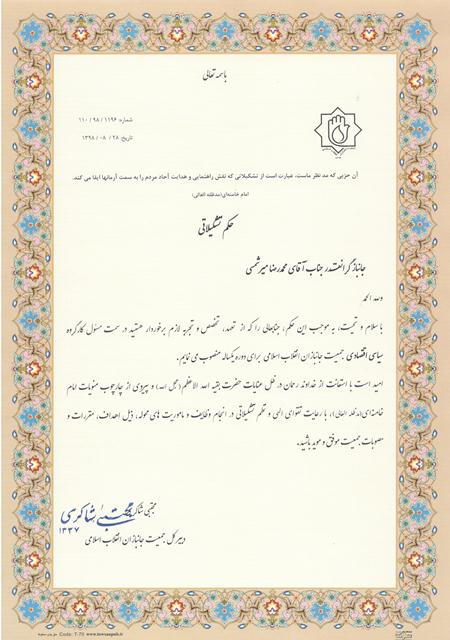 باسمه تعالی
شماره: ۱۱۹۶ / ۹۸ / ۱۱۰
تاریخ: ۲۸ / ۰۸ / ۱۳۹۸
آن حزبی که مد نظر ماست، عبارت است از تشکیلاتی که نقش راهنمایی و هدایت آحاد مردم را به سمت آرمانها ایفا می کند.
امام خامنه‌ای(مدظله العالی)
حکم تشکیلاتی
جانباز گرانقدر جناب آقای محمدرضا میرشمسی
ولله الحمد
با سلام و تحیت، به موجب این حکم، جنابعالی را که از تعهد، تخصص و تجربه لازم برخوردار هستید در سمت مسئول کارگروه
سیاسی اقتصادی جمعیت جانبازان انقلاب اسلامی برای دوره یکساله منصوب می نمایم.
امید است با استعانت از خداوند رحمان در ظل عنایات حضرت بقیه الله الاعظم(عجل الله) و پیروی از چارچوب منویات امام
خامنه‌ای(مدظله العالی)، با رعایت تقوای الهی و نظم تشکیلاتی در انجام وظایف و ماموریت های محوله، ذیل اهداف، مقررات و
مصوبات جمعیت موفق و موید باشید.
مجتبی شاکری
مجتبی شاکری
۱۳۳۷
دبیرکل جمعیت جانبازان انقلاب اسلامی
Code: T-75 www.towsangub.ir